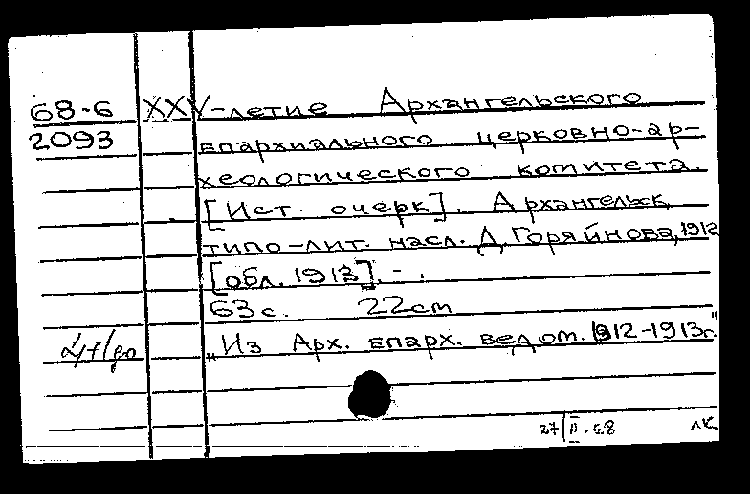 68-6 XXV-летие Архангельского
2093 епархиального церковно-ар-
хеологического комитета.
[Ист. очерк]. Архангельск,
типо-лит. насл. Д. Горяйнова, 1912
[обл. 1913]. - .
63 с. 22 cm
„Из Арх. епарх. ведом. 1912-1913г."
27/II-68 ЛК